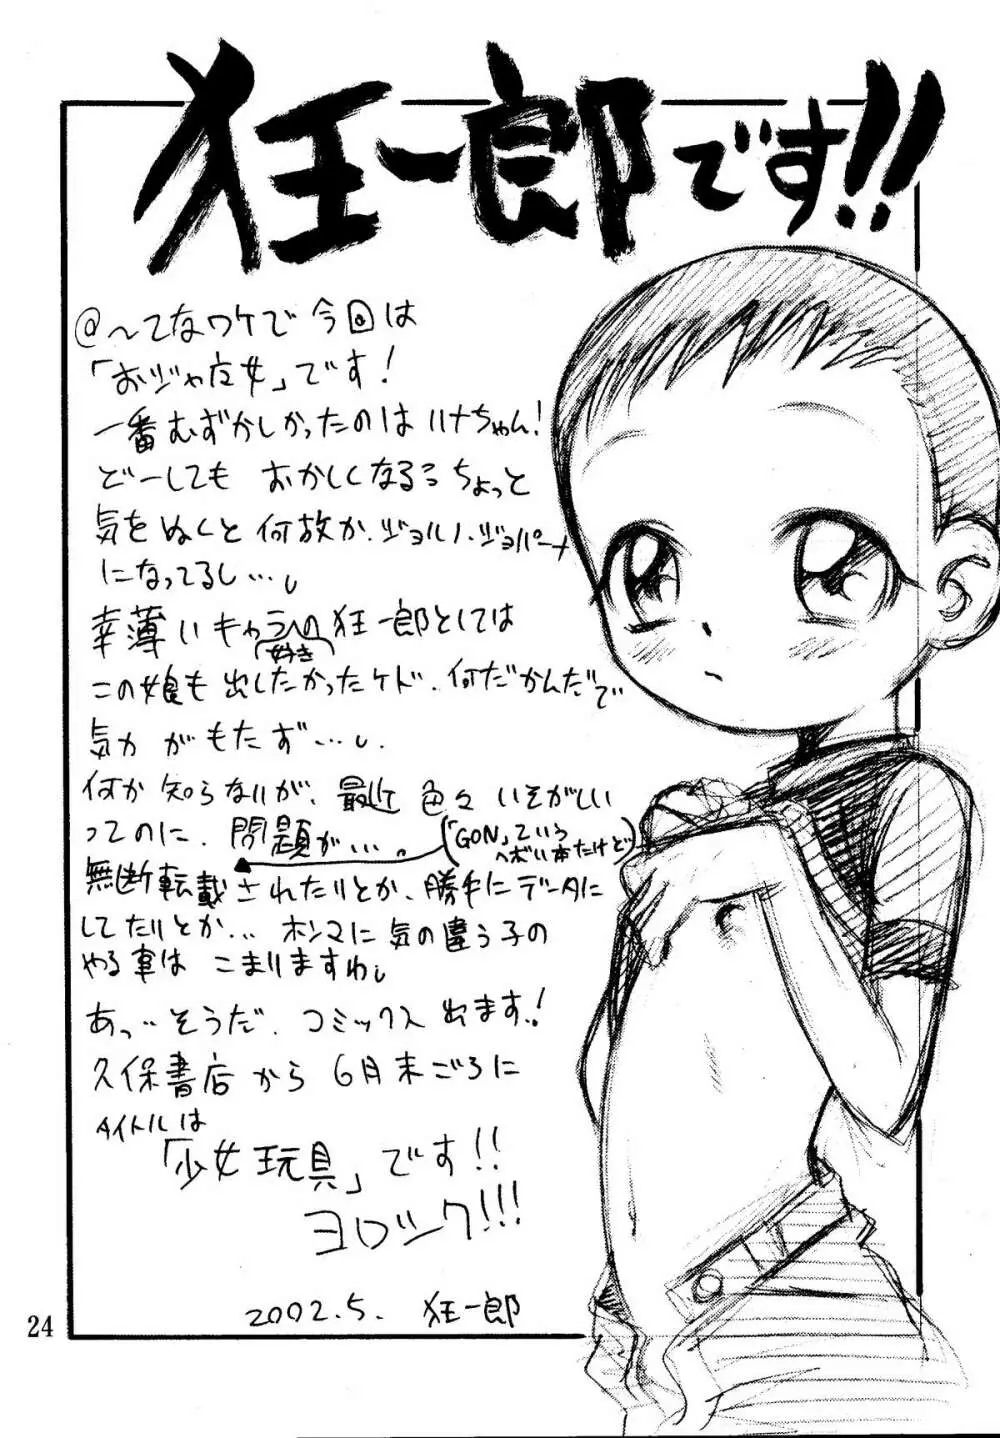 狂一郎です!!
@〜てなワケで今回は
「おジャ魔女」です!
一番むずかしかったのはハナちゃん!
どーしても おかしくなるっちょっと
気をぬくと何故か、ジョルノ・ジョバーナ
になってるし…。
幸薄いキャラ好きの狂一郎としては
この娘も出したかったケド、何だかんだで
気力がもたず…。
何か知らないが、最近 色々 いそがしい
ってのに、問題が…。
(「GON」ていう
ヘボい本だけど)
無断転載されたりとか、勝手にデータに
してたりとか… ホンマに気の違う子の
やる事は こまりますわ。
あっ…そうだ、コミックス出ます!
久保書店から 6月末ごろに
タイトルは
「少女玩具」です!!
ヨロシク!!!
2002.5. 狂一郎
24